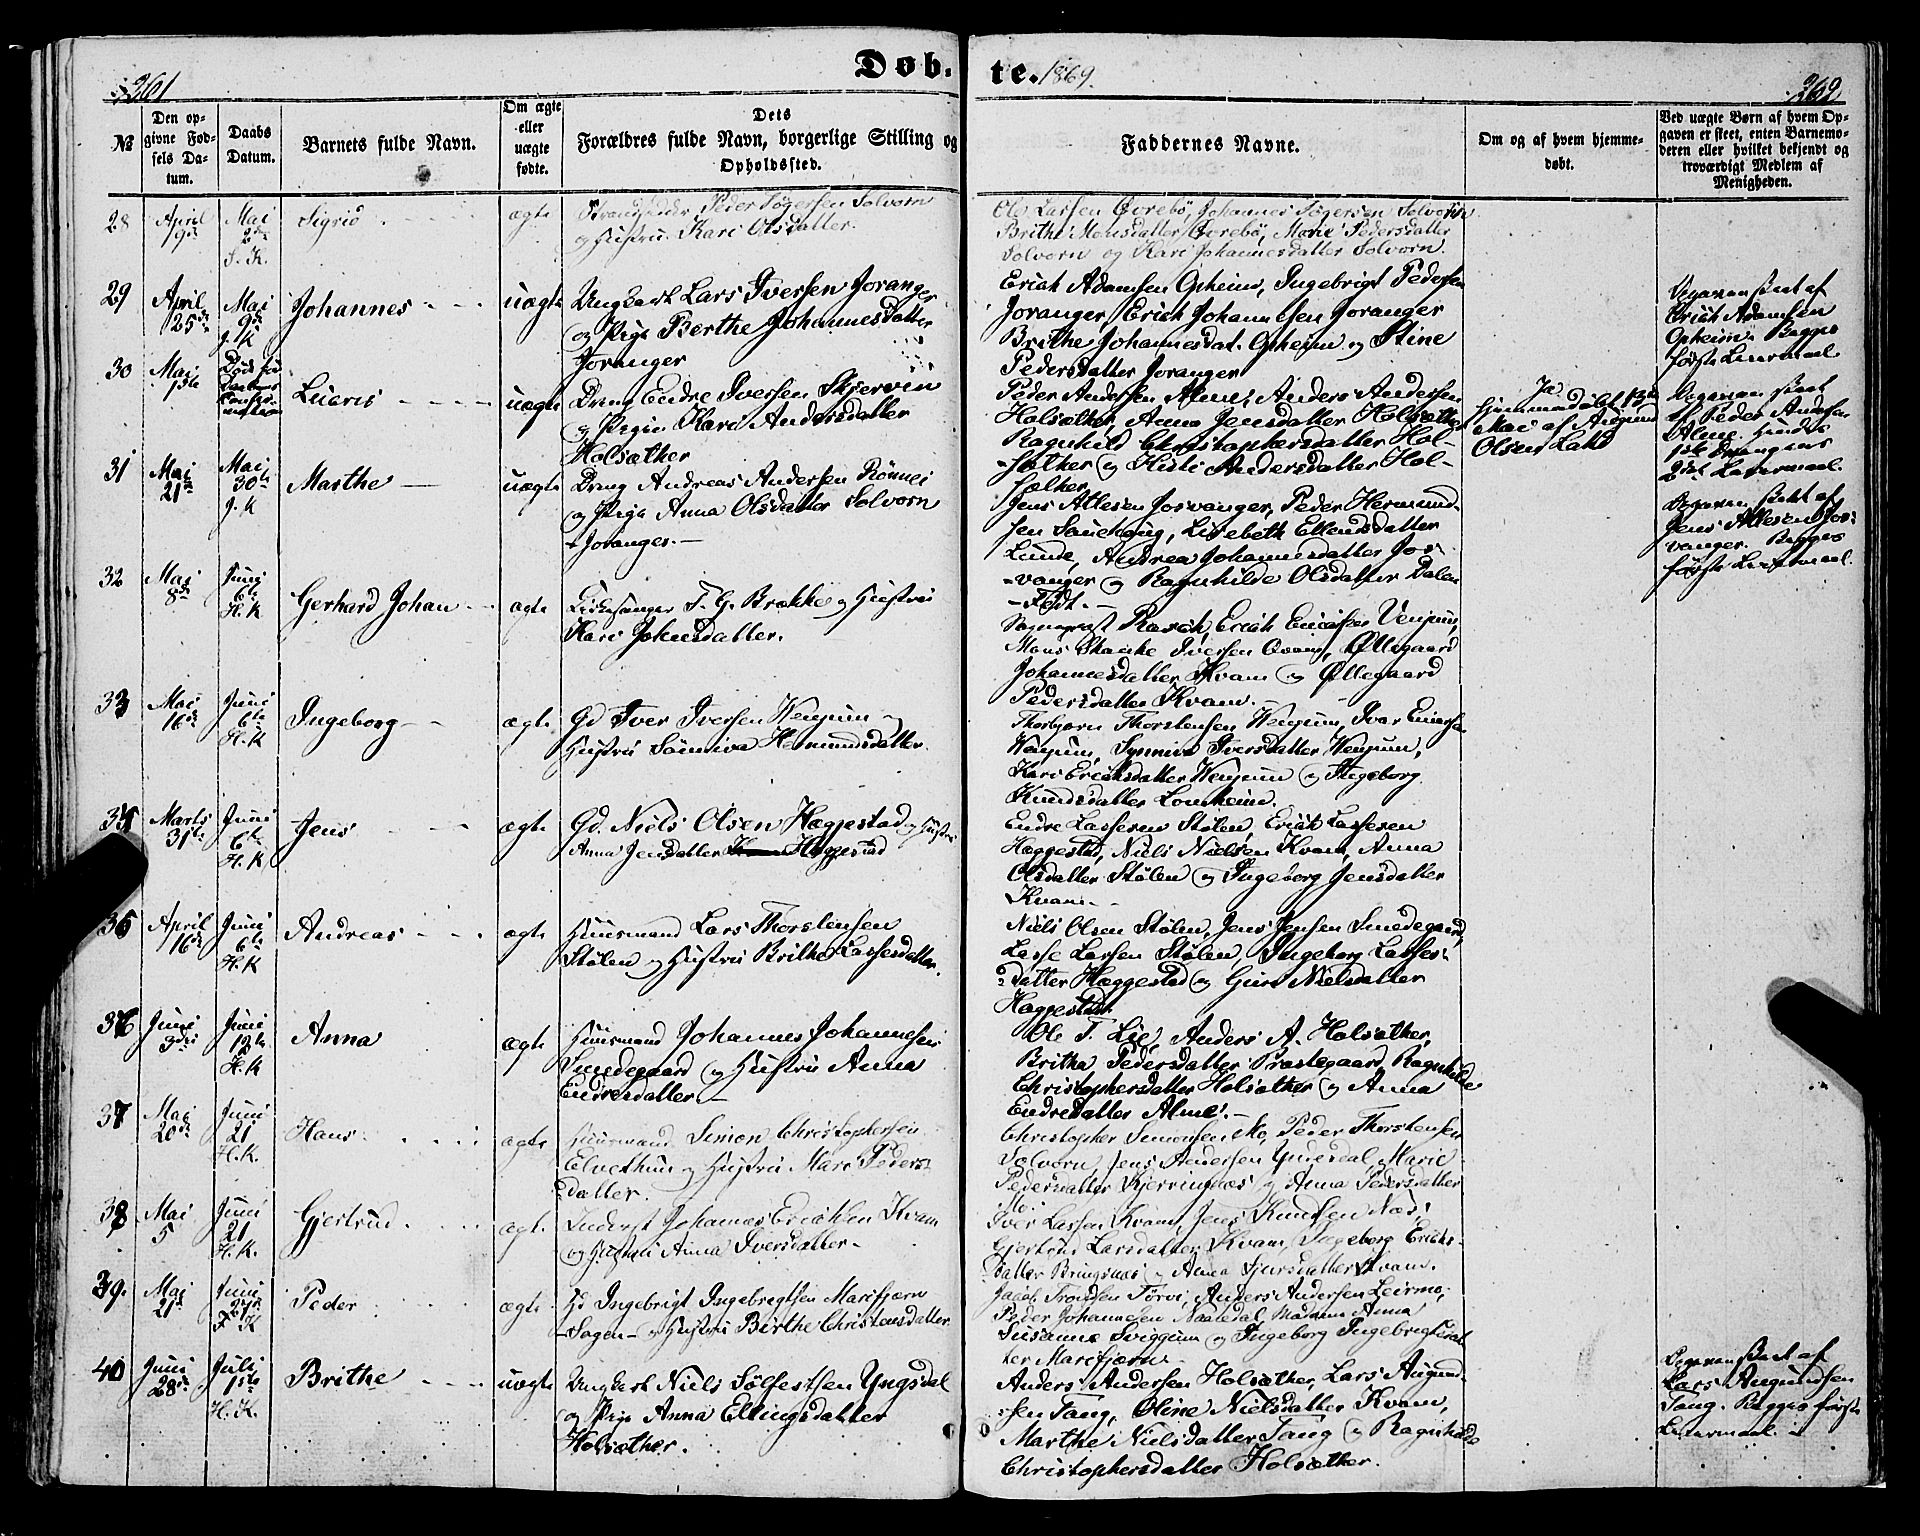 361
Døb-
te. 1869.
362
№
Den op-
givne Fød-
sels Da-
tum.
Daabs
Datum.
Barnets fulde Navn.
Om ægte
eller
uægte
fødte.
Dets
Forældres fulde Navn, borgerlige Stilling og
Opholdssted.
Faddernes Navne.
Om og af hvem hjemme-
døbt.
Ved uægte Børn af hvem Op-
gaven er skeet, enten Barnemo-
deren eller hvilket bekjendt og
troværdigt Medlem af
Menigheden.
28
April
9de
Mai
2den
S. K.
Sigrid
ægte
Strandsidder Peder Søgersen Solvorn
og Hustru Kari Olsdatter.
Ole Larsen Øvrebö, Johannes Søgersen Solvorn
Brithe Monsdatter Øvrebö, Marie Pedersdatter
Solvorn og Kari Johannesdatter Solvorn.
29
April
25de
Mai
9de
J. K
Johannes
uægte
Ungkarl Lars Iversen Joranger
og Pige Berthe Johannesdatter
Joranger
Erich Adamsen Opheim, Ingebrigt Pedersen
Joranger, Erich Johannesen Joranger
Brithe Johannesdat. Opheim og Stine
Pedersdatter Joranger
Opgaven skeet af
Erich Adamsen
Opheim. Begges
første Leiermaal
30
Mai
1ste
uægte
Dreng Endre Iversen Skjervin
og Pigen Kari Andersdatter
Holsæther
Peder Andersen Alme, Anders Andersen
Holsæther, Anna Jensdatter Holsæther
Ragnhild Christophersdatter Hol-
sæther og Kisti Andersdatter Hol-
sæther
Ja
Hjemmedøbt 13de
Mai af Augund
Olsen Lad
Opgaven skeet
af Peder Andersen
Alme. Hendes
1ste Drengens
2det Leiermaal.
31
Mai
21de
Mai
30te
J. K
Marthe
uægte
Dreng Andreas Andersen Rönnei
og Pige Anna Olsdatter Solvorn
Joranger.
Jens Atlesen Josvanger, Peder Hermund-
sen Sauehaug, Lisebeth Ellendsdatter
Lunde, Andrea Johannesdatter Jos-
vanger og Ragnhilde Olsdatter Dalen
Opgaven skeet af
Jens Atlesen Jos-
vanger. Begges
første Leiermaal.
32
Mai
8de
Juni
6te
H. K
Gerhard Johan
ægte
Kirkesanger T. G. Brække og Hustru
Kari Johnsdatter.
Sogneprest Rasch, Erich Ericksen Venjum,
Mons Skanke Iversen Qvam, Øllegaard
Johannesdatter Kvam og Øllegaard
Pedersdatter Kvam.
33
Mai
16de
Juni
6te
H. K
Ingeborg
ægte
Gd Iver Iversen Wenjum og
Hustru Sönniva Hermundsdatter.
Thorbjørn Thorstensen Wenjum, Ivar Ericsen
Wenjum, Synniva Iversdatter Wenjum,
Kari Erichsdatter Wenjum og Ingeborg
Knudsdatter Lomheim.
35
Marts
31te
Juni
6te
H. K
Jens
ægte
Gd. Niels Olsen Hæggestad og Hustru
Anna Jensdatter Hæggestad
Endre Lassesen Stølen, Erich Lassesen
Hæggestad, Niels Nielsen Kvam, Anna
Olsdatter Stølen og Ingeborg Jensdatter
Kvam.
36
April
16de
Juni
6te
H. K
Andreas
ægte
Huusmand Lars Thorstensen
Stølen og Hustru Brithe Lassesdatter.
Niels Olsen Stølen, Jens Jensen Smedegaard,
Lasse Larsen Stølen, Ingeborg Lasses-
datter Hæggestad og Guri Nielsdatter
Hæggestad
36
Juni
3die
Juni
12te
H. K
Anna
ægte
Huusmand Johannes Johannesen
Smedegaard og Hustru Anna
Endresdatter.
Ole T. Lie, Anders A. Holsæther,
Britha Pedersdatter Præstegaard, Ragnhilde
Christophersdatter Holsæther og Anna
Endresdatter Alme.
37
Mai
20de
Juni
21
H. K.
Hans
ægte
Huusmand Simon Christophersen
Elvethun og Hustru Mari Peders-
datter.
Christopher Simonsen Mo, Peder Thorstensen
Solvorn, Jens Andersen Yndesdal, Marie
Pedersdatter Kjerringnæs og Anna Pedersdatter
Mo.
38
Mai
5
Juni
21
H. K.
Gjertrud
ægte
Inderst Johannes Erichsen Kvam
og Hustru Anna Iversdatter
Iver Larsen Kvam, Jens Knudsen Næs,
Gjertrud Larsdatter Kvam, Ingeborg Erichs-
datter Bringsnæs og Anna Sjursdatter Kvam.
39.
Mai
21de
Juni
27de
F. K
Peder
ægte
Gd Ingebrigt Ingebrigtsen Marifjæren
Hagen og Hustru Birthe Christensdatter.
Jacob Trondsen Tørvi, Anders Andersen Leirmo,
Peder Johannesen Naaledal, Madam Anna
Susanne Sviggum og Ingeborg Ingebrigtsdat-
ter Marifjæren
40
Juni
28de
Juli
1ste
H. K.
Brithe
uægte
Ungkarl Niels Sølfestsen Yngsdal
og Pige Anna Ellingsdatter
Holsæther.
Anders Andersen Holsæther, Lars Augund-
sen Tang, Oline Nielsdatter Kvam,
Marthe Nielsdatter Tang og Ragnhilde
Christophersdatter Holsæther.
Opgaven skeet af
Lars Augundsen
Tang. Begges første
Leiermaal.